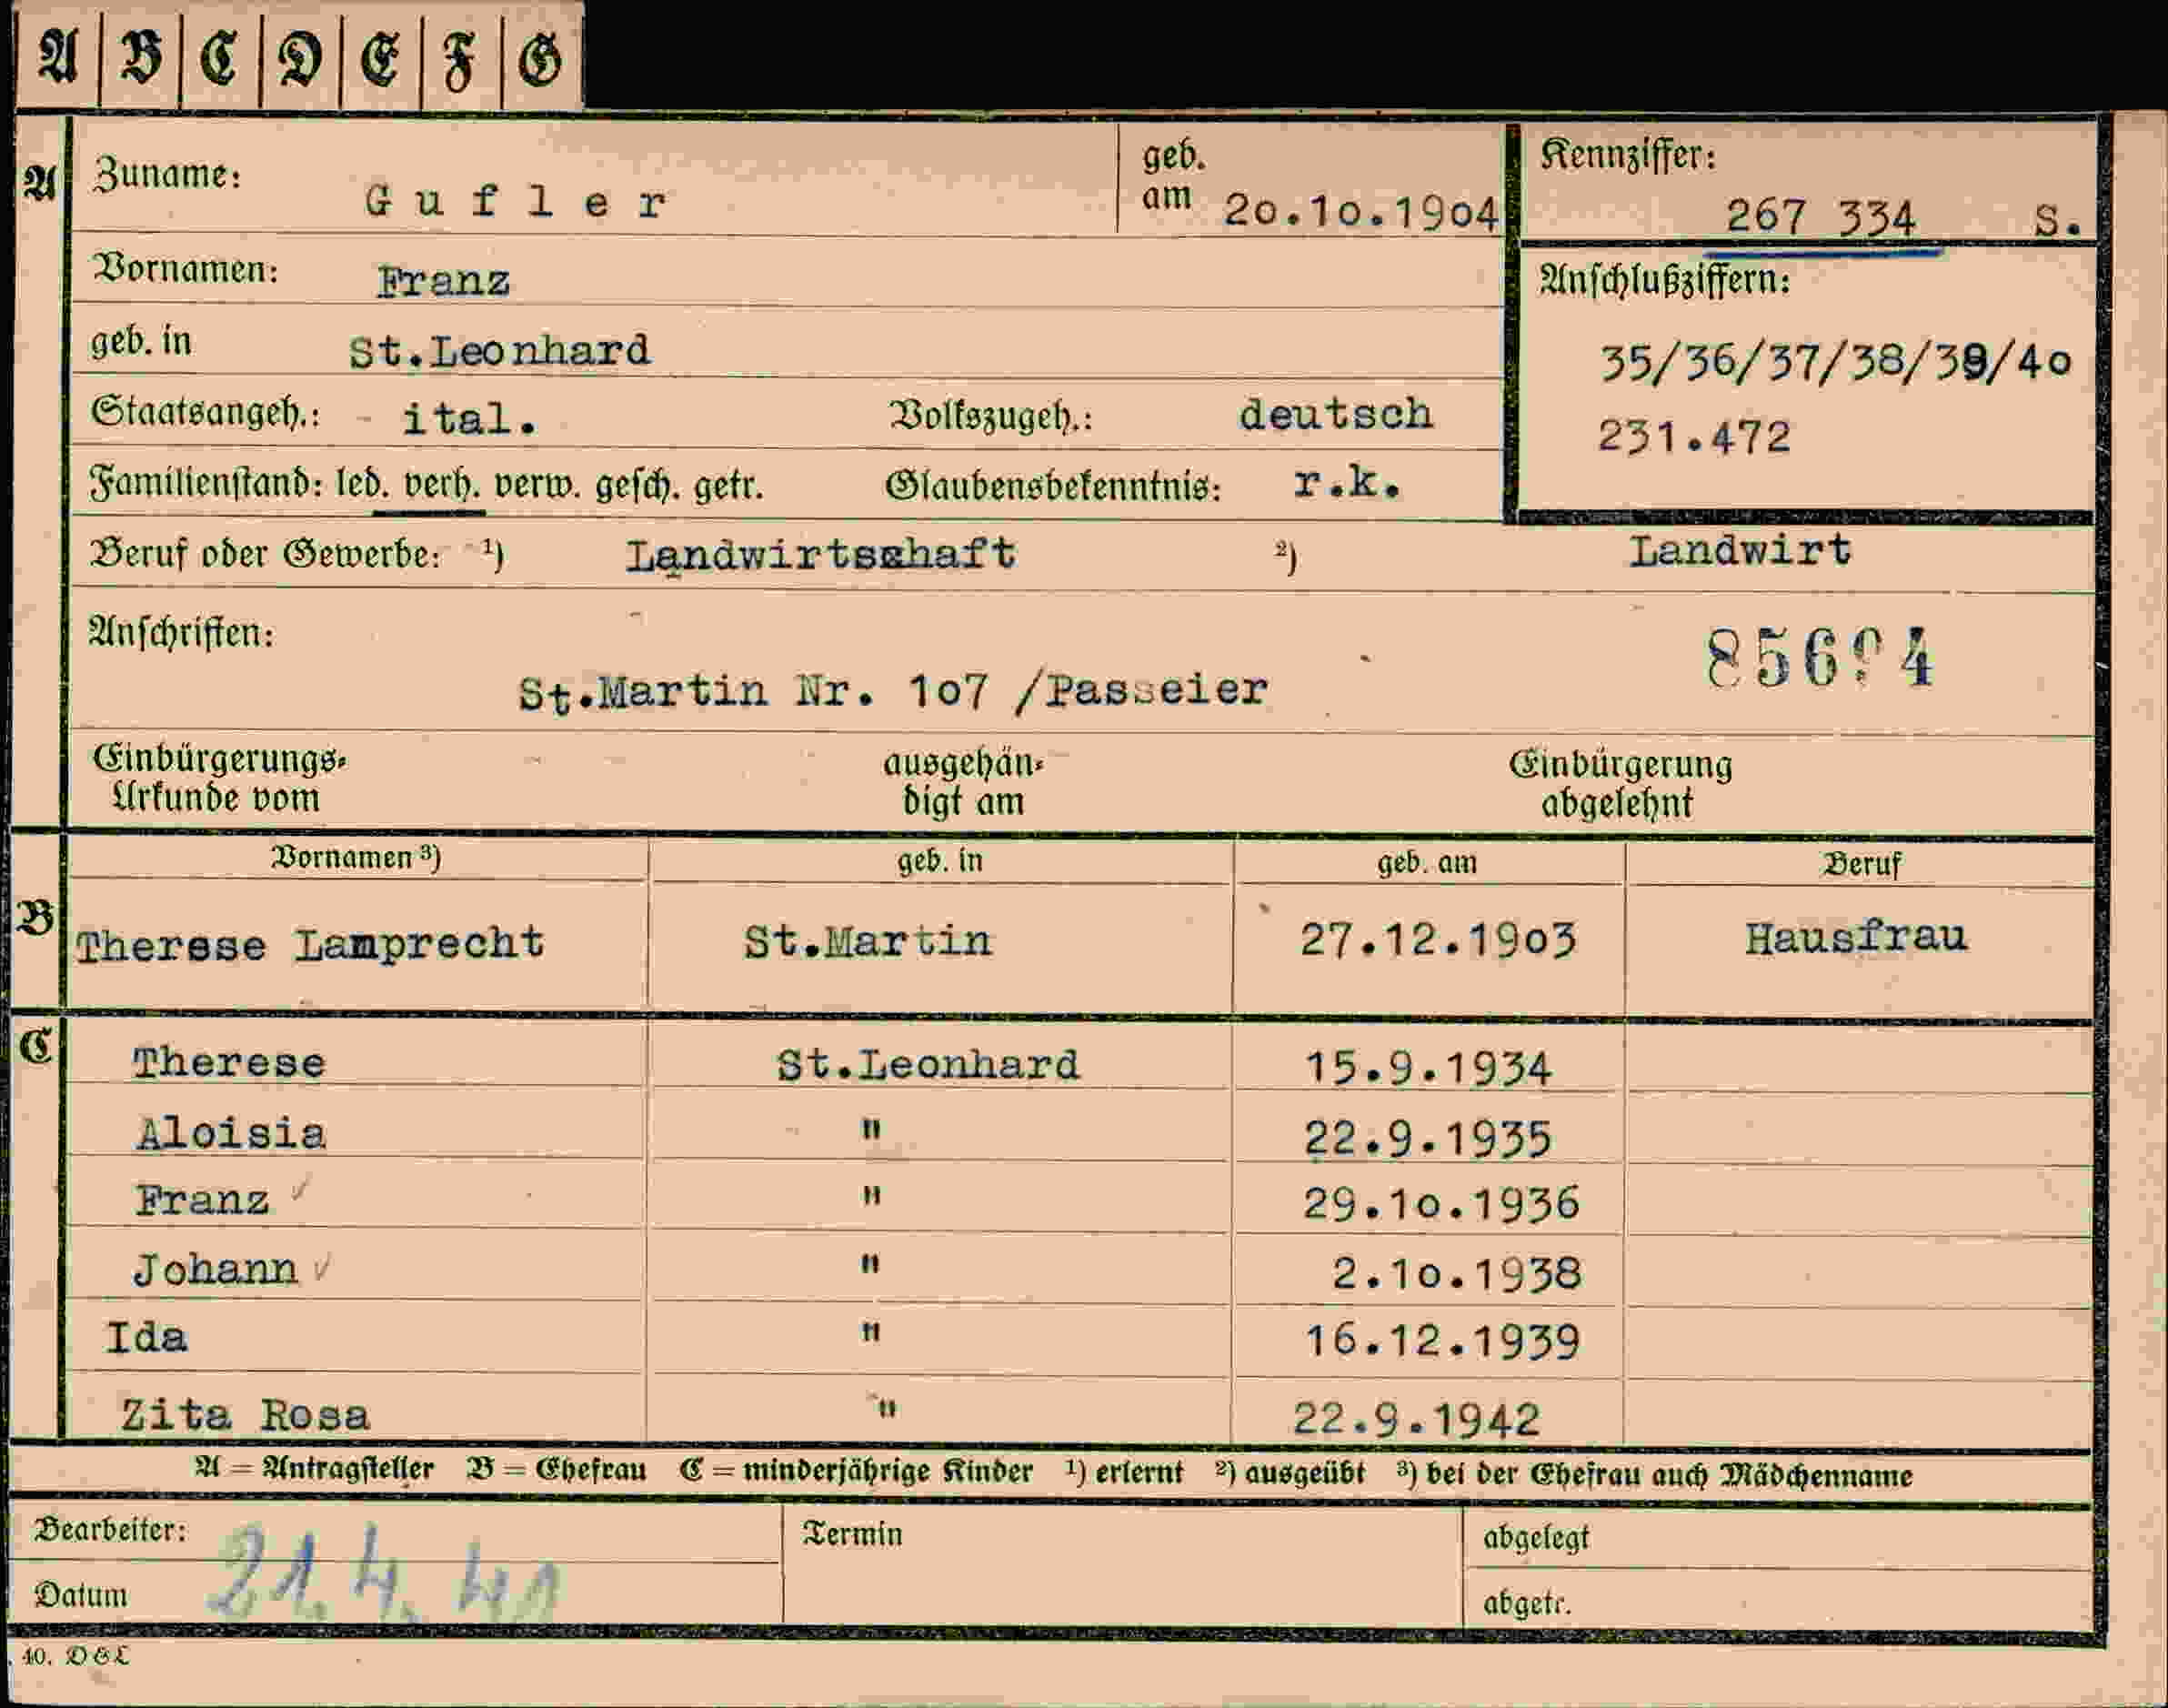 A B C D E F G
A Zuname: Gufler geb. am 20.10.1904 Kennziffer: 267 334 S.
Vornamen: Franz Anschlußziffern:
geb. in St.Leonhard 35/36/37/38/39/40
Staatsangeh.: ital. Volkszugeh.: deutsch 231.472
Familienstand: led. verh. verw. gesch. getr. Glaubensbekenntnis: r.k.
Beruf oder Gewerbe: ¹) Landwirtschaft ²) Landwirt
Anschriften:
St.Martin Nr. 107 /Passeier
Einbürgerungs- ausgehän- Einbürgerung
Urkunde vom digt am abgelehnt
Vornamen ³) geb. in geb. am Beruf
B Therese Lamprecht St.Martin 27.12.1903 Hausfrau
C Therese St.Leonhard 15.9.1934
Aloisia " 22.9.1935
Franz ✓ " 29.10.1936
Johann ✓ " 2.10.1938
Ida " 16.12.1939
Zita Rosa " 22.9.1942
A = Antragsteller B = Ehefrau C = minderjährige Kinder ¹) erlernt ²) ausgeübt ³) bei der Ehefrau auch Mädchenname
Bearbeiter: Termin abgelegt
Datum 21.4.41 abgetr.
40.